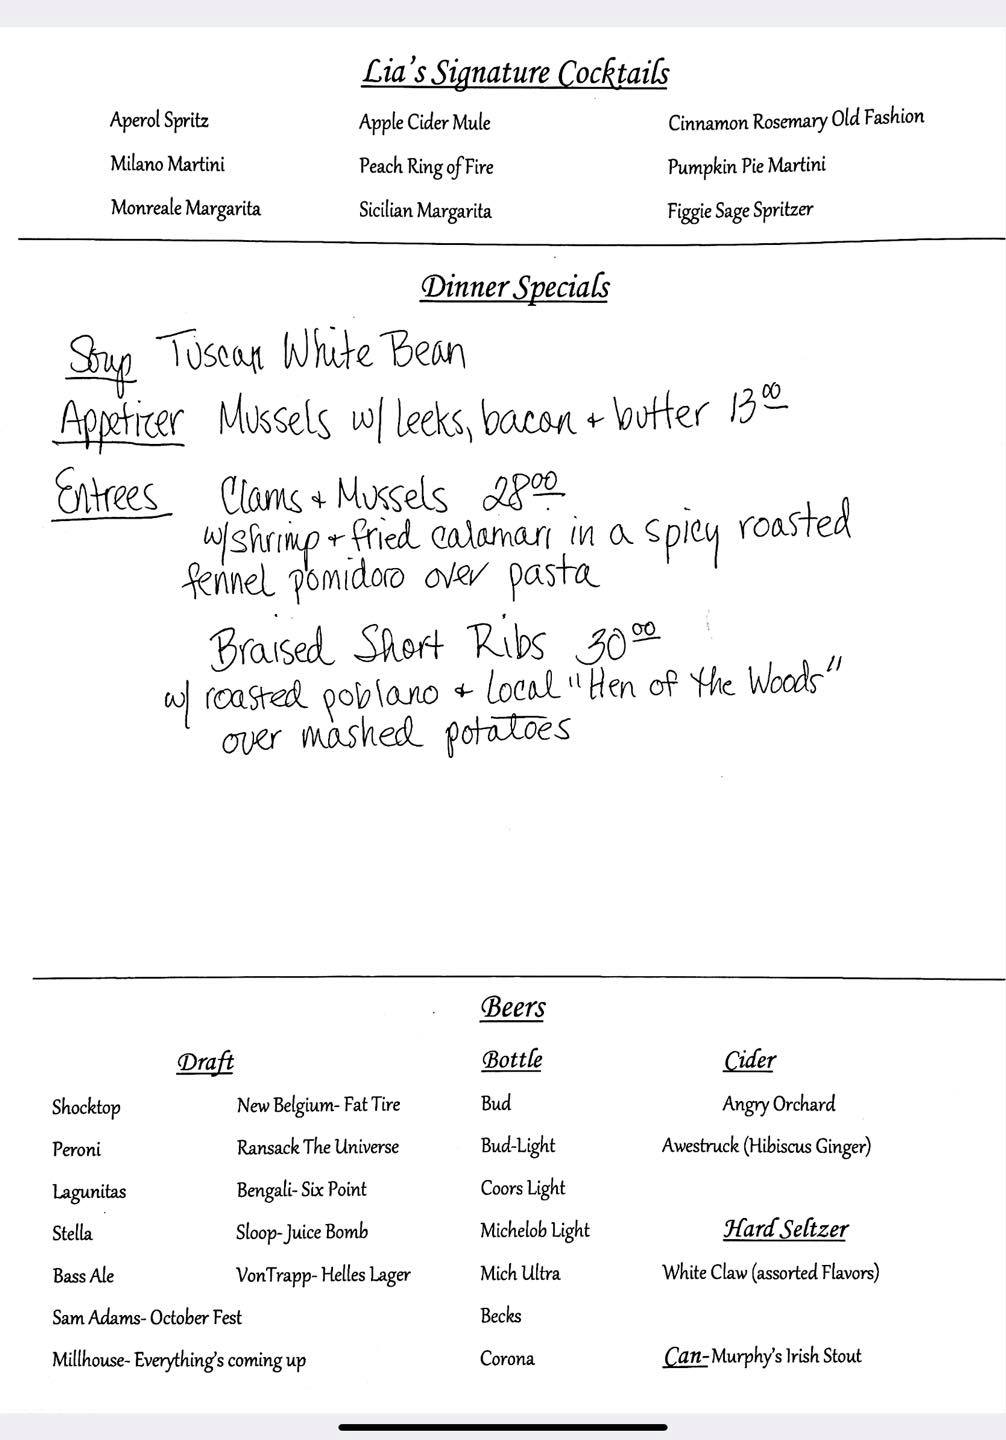 Lia's Signature Cocktails
Aperol Spritz Apple Cider Mule Cinnamon Rosemary Old Fashion
Milano Martini Peach Ring of Fire Pumpkin Pie Martini
Monreale Margarita Sicilian Margarita Figgie Sage Spritzer
Dinner Specials
Soup Tuscan White Bean
Appetizer Mussels w/ leeks, bacon + butter 13 00
Entrees Clams + Mussels 28 00
w/ shrimp + fried calamari in a spicy roasted
fennel pomidoro over pasta
Braised Short Ribs 30 00
w/ roasted poblano + Local "Hen of the Woods"
over mashed potatoes
Beers
Draft Bottle Cider
Shocktop New Belgium- Fat Tire Bud Angry Orchard
Peroni Ransack The Universe Bud-Light Awestruck (Hibiscus Ginger)
Lagunitas Bengali- Six Point Coors Light
Stella Sloop- Juice Bomb Michelob Light Hard Seltzer
Bass Ale VonTrapp- Helles Lager Mich Ultra White Claw (assorted Flavors)
Sam Adams- October Fest Becks
Millhouse- Everything's coming up Corona Can- Murphy's Irish Stout